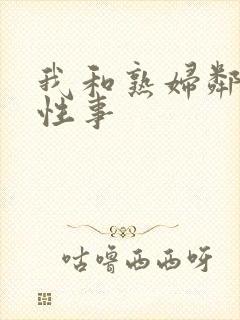 我和熟妇鄰
性事
咕噜西西呀